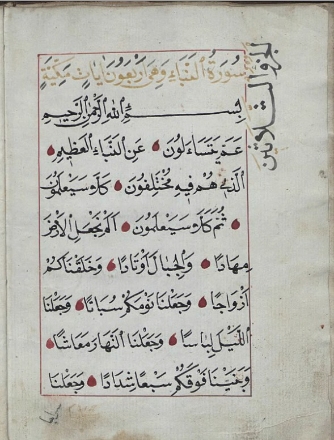 سورة النباء وهي اربعون ايات مكية
الجزو الثلاثين
بسم الله الرحمن الرحيم
عَمَّ يَتَسَاءَلُونَ عَنِ النَّبَاءِ الْعَظِيمِ
الَّذِي هُمْ فِيهِ مُخْتَلِفُونَ كَلَّا سَيَعْلَمُونَ
ثُمَّ كَلَّا سَيَعْلَمُونَ أَلَمْ نَجْعَلِ الْأَرْضَ
مِهَادًا وَالْجِبَالَ أَوْتَادًا وَخَلَقْنَاكُمْ
أَزْوَاجًا وَجَعَلْنَا نَوْمَكُمْ سُبَاتًا وَجَعَلْنَا
اللَّيْلَ لِبَاسًا وَجَعَلْنَا النَّهَارَ مَعَاشًا
وَبَنَيْنَا فَوْقَكُمْ سَبْعًا شِدَادًا وَجَعَلْنَا